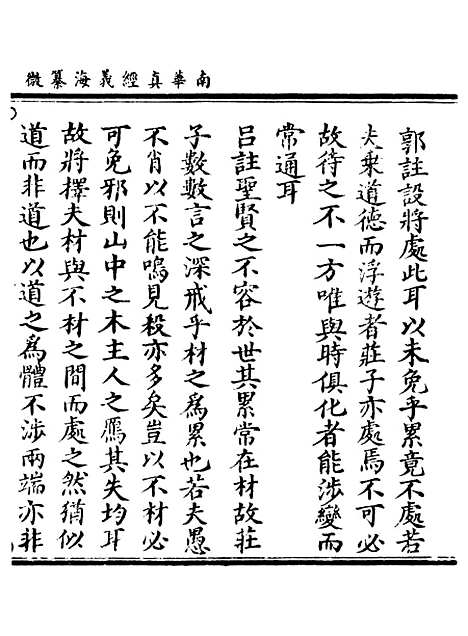 南華真經義海纂微
郭註設將處此耳以未免乎累竟不處若
夫乘道德而浮遊者莊子亦處焉不可必
故待之不一方唯與時俱化者能涉變而
常通耳
呂註聖賢之不容於世其累常在材故莊
子數數言之深戒乎材之為累也若夫愚
不肖以不能鳴見殺亦多矣豈以不材必
可免邪則山中之木主人之鴈其失均耳
故將擇夫材與不材之間而處之然猶似
道而非道也以道之為體不涉兩端亦非